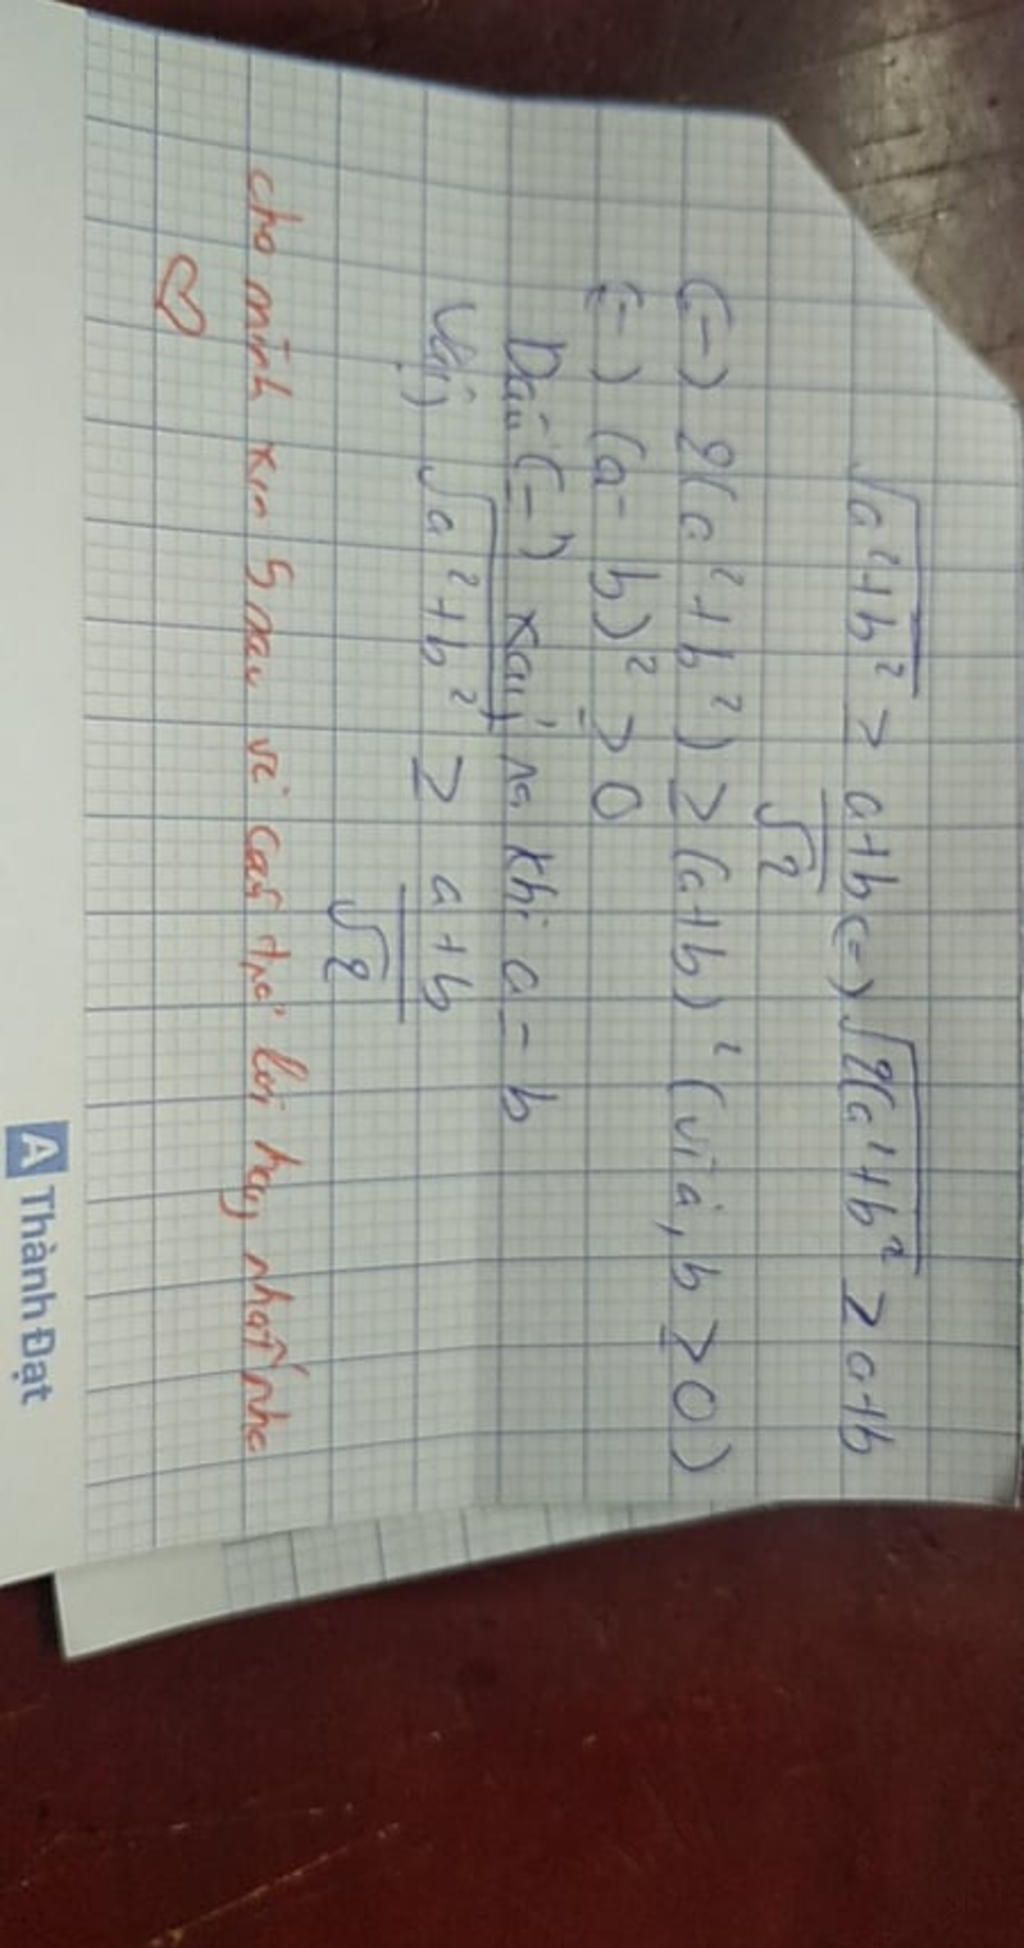 √a²+b² ≥ a+b/√2 (=) √2(a²+b² ≥ a+b
(=) 2(a²+b²) ≥ (a+b)² (vì a, b ≥ 0)
(=) (a-b)² ≥ 0
Dấu (=) xảy ra khi a = b
Vậy √a²+b² ≥ a+b/√2
cho mình xin 5 sao và câu trả lời hay nhất nha
♡
A Thành Đạt